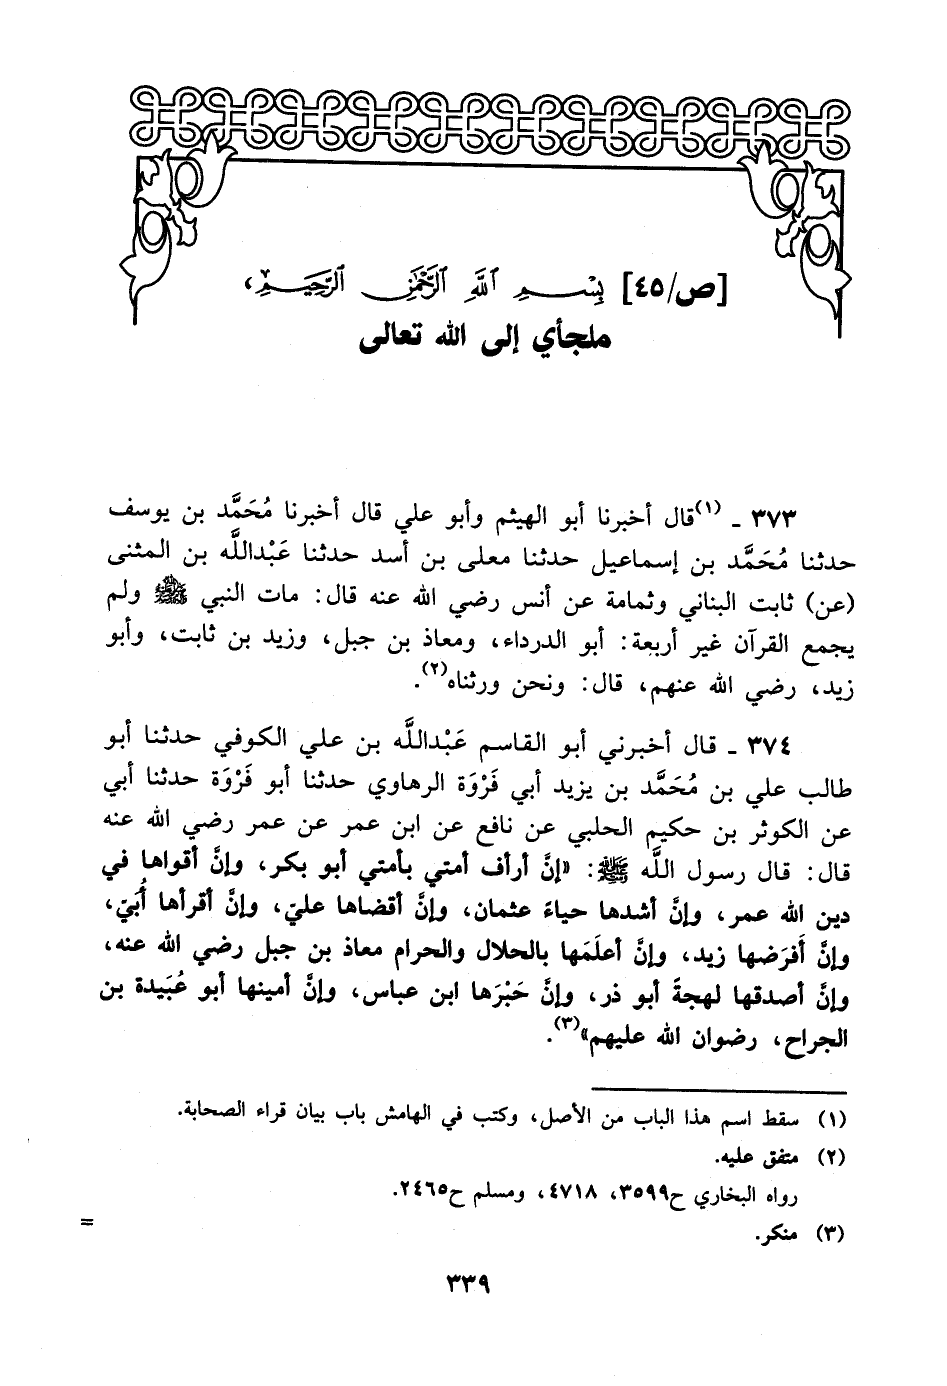 [ص/٤٥] بِسْمِ اللَّهِ الرَّحْمَنِ الرَّحِيمِ،
ملجأي إلى الله تعالى
٣٧٣ ـ (١)قال أخبرنا أبو الهيثم وأبو علي قال أخبرنا مُحَمَّد بن يوسف
حدثنا مُحَمَّد بن إسماعيل حدثنا معلى بن أسد حدثنا عَبْداللَّه بن المثنى
(عن) ثابت البناني وثمامة عن أنس رضي الله عنه قال: مات النبي ﷺ ولم
يجمع القرآن غير أربعة: أبو الدرداء، ومعاذ بن جبل، وزيد بن ثابت، وأبو
زيد، رضي الله عنهم، قال: ونحن ورثناه(٢).
٣٧٤ ـ قال أخبرني أبو القاسم عَبْداللَّه بن علي الكوفي حدثنا أبو
طالب علي بن مُحَمَّد بن يزيد أبي فَرْوَة الرهاوي حدثنا أبو فَرْوَة حدثنا أبي
عن الكوثر بن حكيم الحلبي عن نافع عن ابن عمر عن عمر رضي الله عنه
قال: قال رسول اللَّه ﷺ: «إنَّ أرأف أمتي بأمتي أبو بكر، وإنَّ أقواها في
دين الله عمر، وإنَّ أشدها حياءً عثمان، وإنَّ أقضاها علي، وإنَّ أقرأها أُبَيّ،
وإنَّ أَفرَضها زيد، وإنَّ أعلَمَها بالحلال والحرام معاذ بن جبل رضي الله عنه،
وإنَّ أصدقها لهجةً أبو ذر، وإنَّ حَبْرَها ابن عباس، وإنَّ أمينها أبو عُبَيدة بن
الجراح، رضوان الله عليهم»(٣).
(١) سقط اسم هذا الباب من الأصل، وكتب في الهامش باب بيان قراء الصحابة.
(٢) متفق عليه.
رواه البخاري ح٣٥٩٩، ٤٧١٨، ومسلم ح٢٤٦٥.
(٣) منكر.
=
٣٣٩